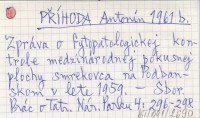 PŘÍHODA Antonín 1961 b.
Zpráva o fytopatologickej kon-
trole medzinárodnej pokusnej
plochy smrekovca na Podban-
skom v lete 1959. — Sbor.
Prác o Tatr. Nár. Parku 4: 296-298